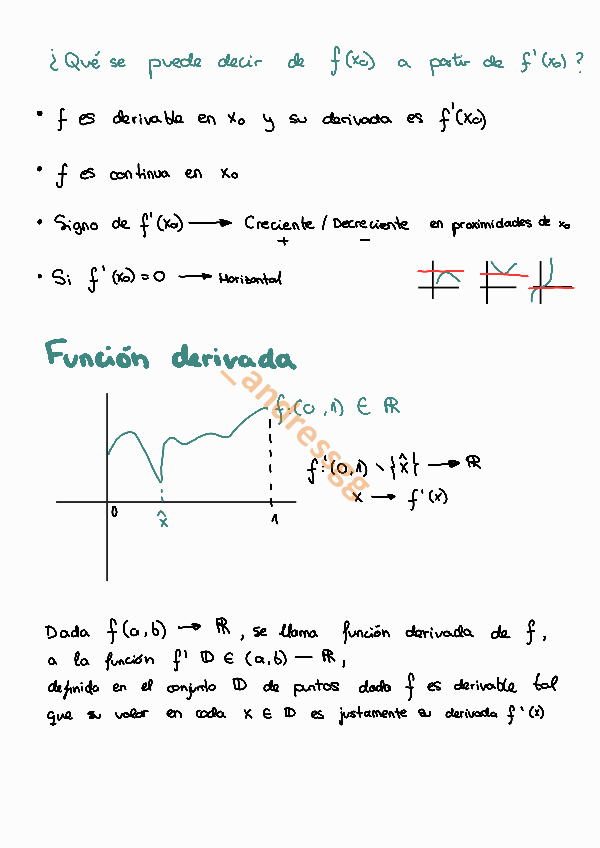 ¿Qué se puede decir de f(x₀) a partir de f'(x₀)?
• f es derivable en x₀ y su derivada es f'(x₀)
• f es continua en x₀
• Signo de f'(x₀) → Creciente / Decreciente en proximidades de x₀
+ −
• Si f'(x₀) = 0 → Horizontal
Función derivada
_andressgg
f:(0,1) ∈ ℝ
f':(0,1) \ {x̂} → ℝ
x → f'(x)
0 x̂ 1
Dada f(a,b) → ℝ, se llama función derivada de f,
a la función f' 𝔻 ∈ (a,b) — ℝ,
definida en el conjunto 𝔻 de puntos dada f es derivable tal
que su valor en cada x ∈ 𝔻 es justamente su derivada f'(x)